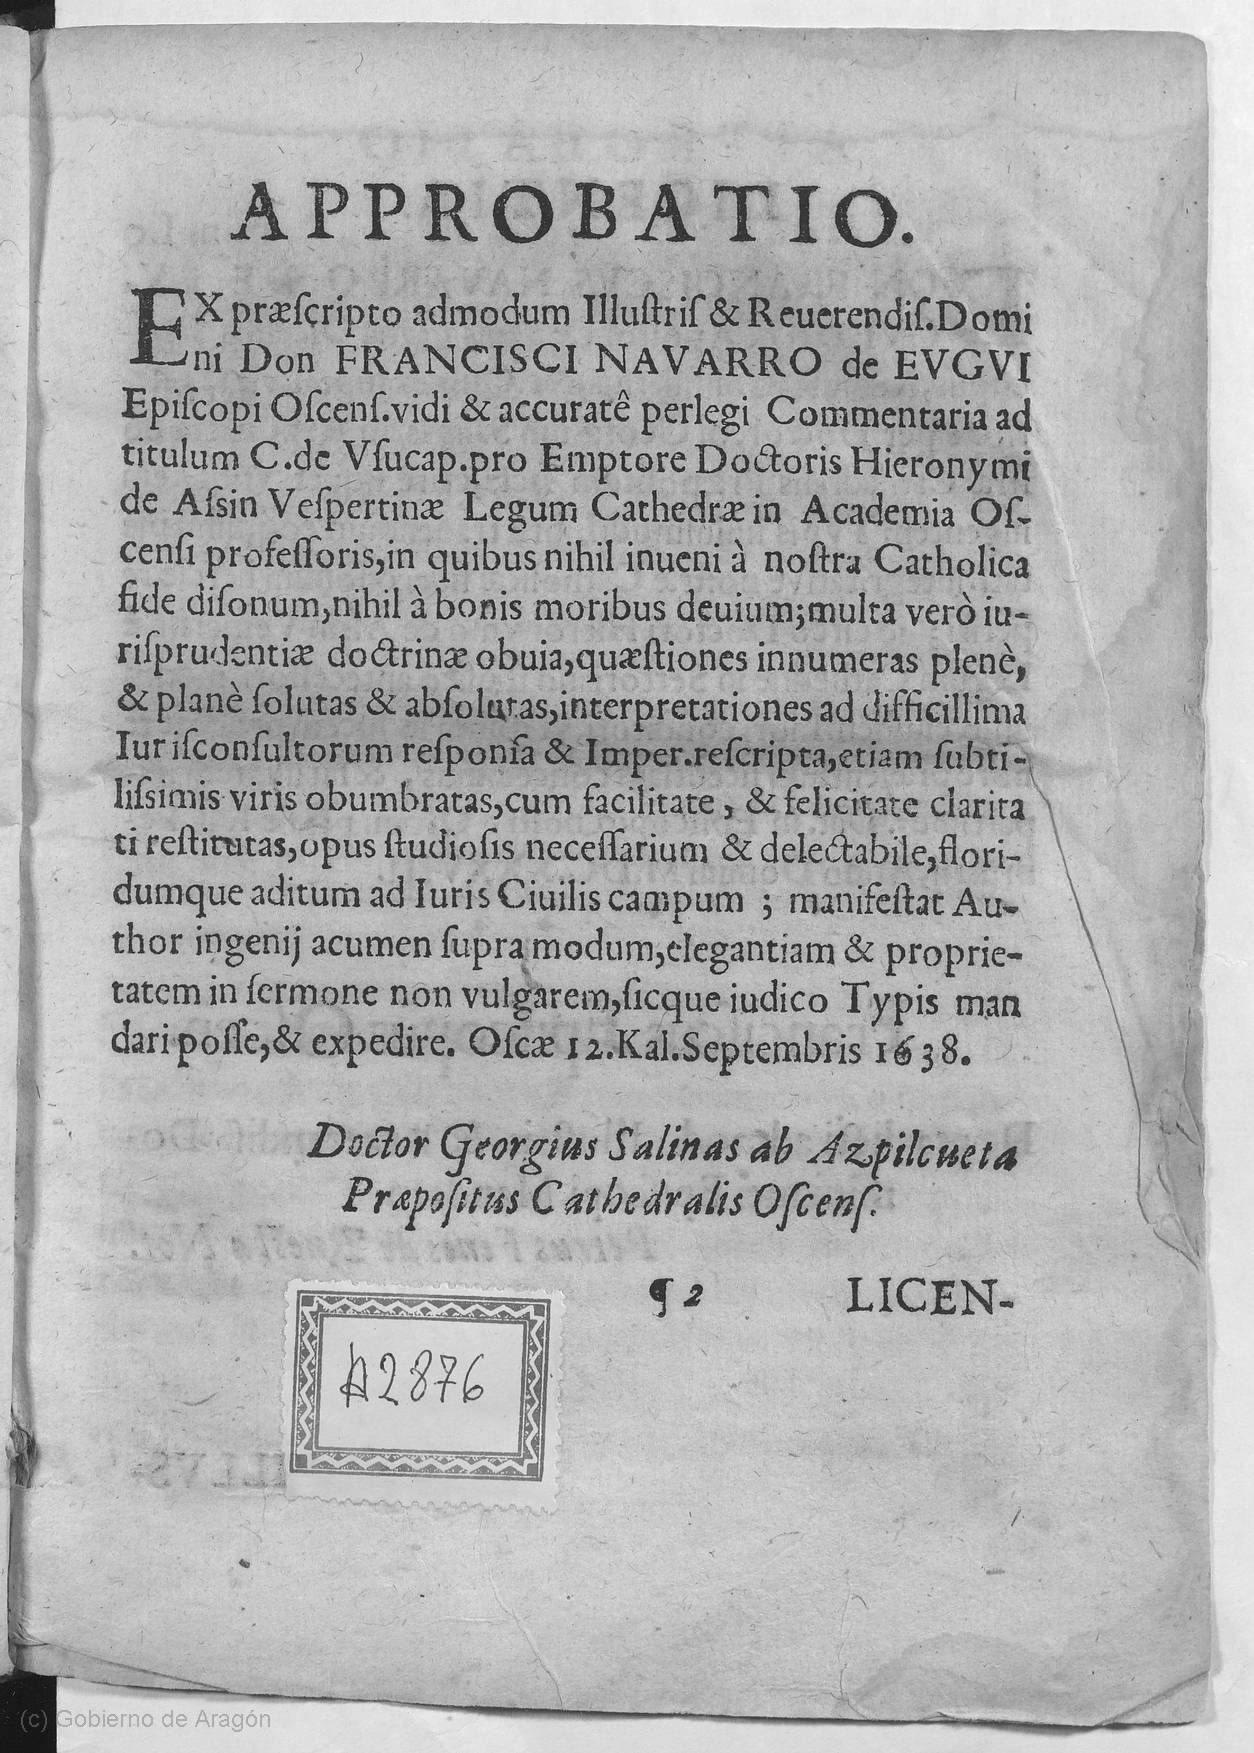 APPROBATIO.
EX præſcripto admodum Illuſtriſ & Reuerendiſ.Domi
ni Don FRANCISCI NAVARRO de EVGVI
Epiſcopi Oſcenſ.vidi & accuratê perlegi Commentaria ad
titulum C.de Vſucap.pro Emptore Doctoris Hieronymi
de Aſsin Veſpertinæ Legum Cathedræ in Academia Oſ-
cenſi profeſſoris,in quibus nihil inueni à noſtra Catholica
fide diſonum,nihil à bonis moribus deuium;multa verò iu-
riſprudentiæ doctrinæ obuia,quæſtiones innumeras plenè,
& planè ſolutas & abſolutas,interpretationes ad difficillima
Iuriſconſultorum reſponſa & Imper.reſcripta,etiam ſubti-
liſsimis viris obumbratas,cum facilitate , & felicitate clarita
ti reſtitutas,opus ſtudioſis neceſſarium & delectabile,flori-
dumque aditum ad Iuris Ciuilis campum ; manifeſtat Au-
thor ingenij acumen ſupra modum,elegantiam & proprie-
tatem in ſermone non vulgarem,ſicque iudico Typis man
dari poſſe,& expedire. Oſcæ 12.Kal.Septembris 1638.
Doctor Georgius Salinas ab Azpilcueta
Præpoſitus Cathedralis Oſcenſ.
¶ 2 LICEN-
A2876
(c) Gobierno de Aragón